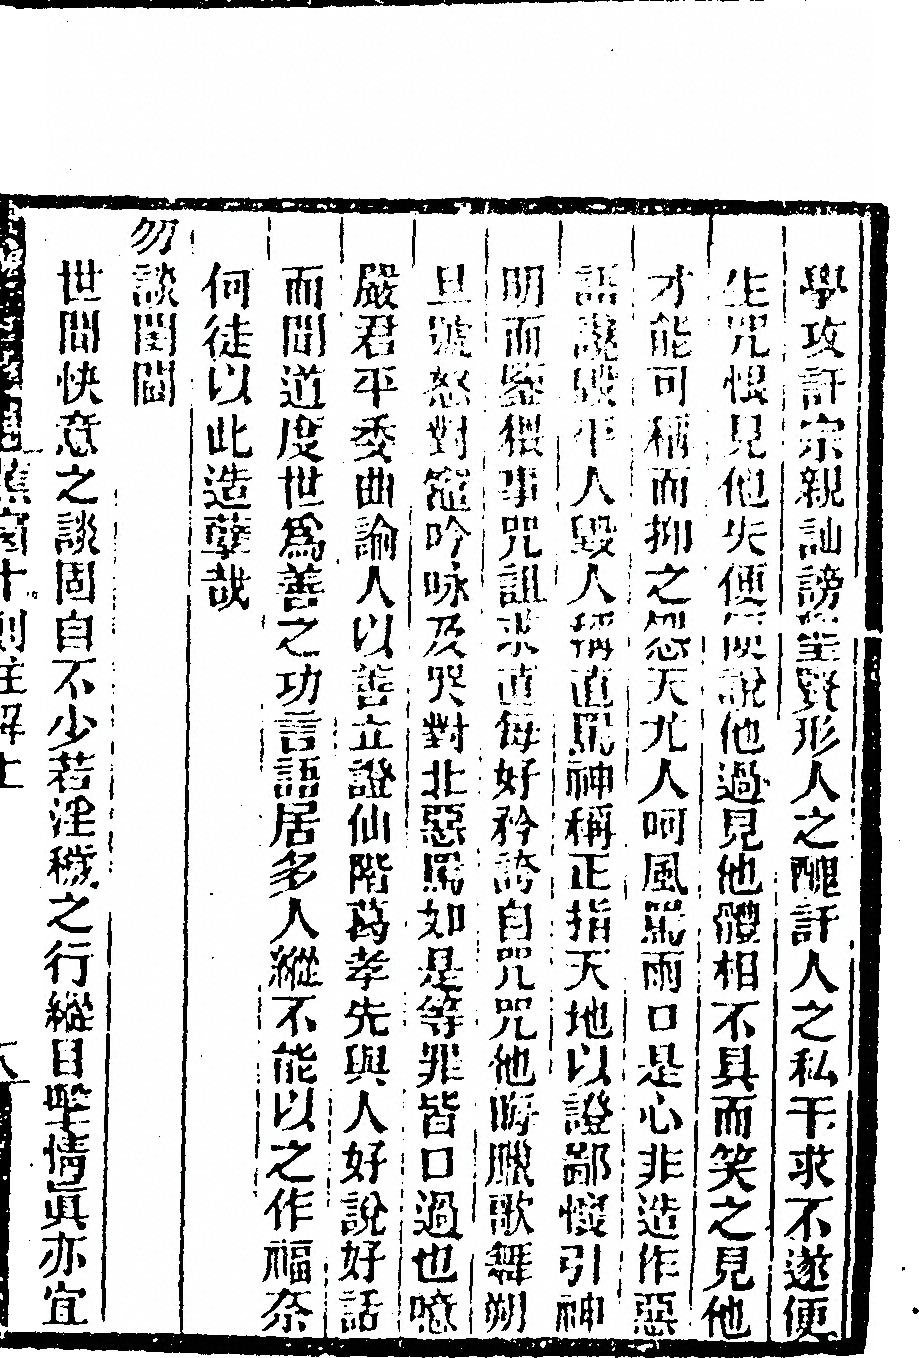 學攻訐宗親訕謗聖賢形人之醜訐人之私干求不遂便
生咒恨見他失便便說他過見他體相不具而笑之見他
才能可稱而抑之怨天尤人呵風罵雨口是心非造作惡
語讒毀平人毀人稱直罵神稱正指天地以證鄙懷引神
明而鑒猥事咒詛求直每好矜誇自咒咒他晦臘歌舞朔
旦號怒對竈吟咏及哭對北惡罵如是等罪皆口過也噫
嚴君平委曲諭人以善立證仙階葛孝先與人好說好話
而聞道度世為善之功言語居多人縱不能以之作福奈
何徒以此造孽哉
勿談閨閫
世間快意之談固自不少若淫穢之行縱目擊情眞亦宜
蕉窗十則註解上